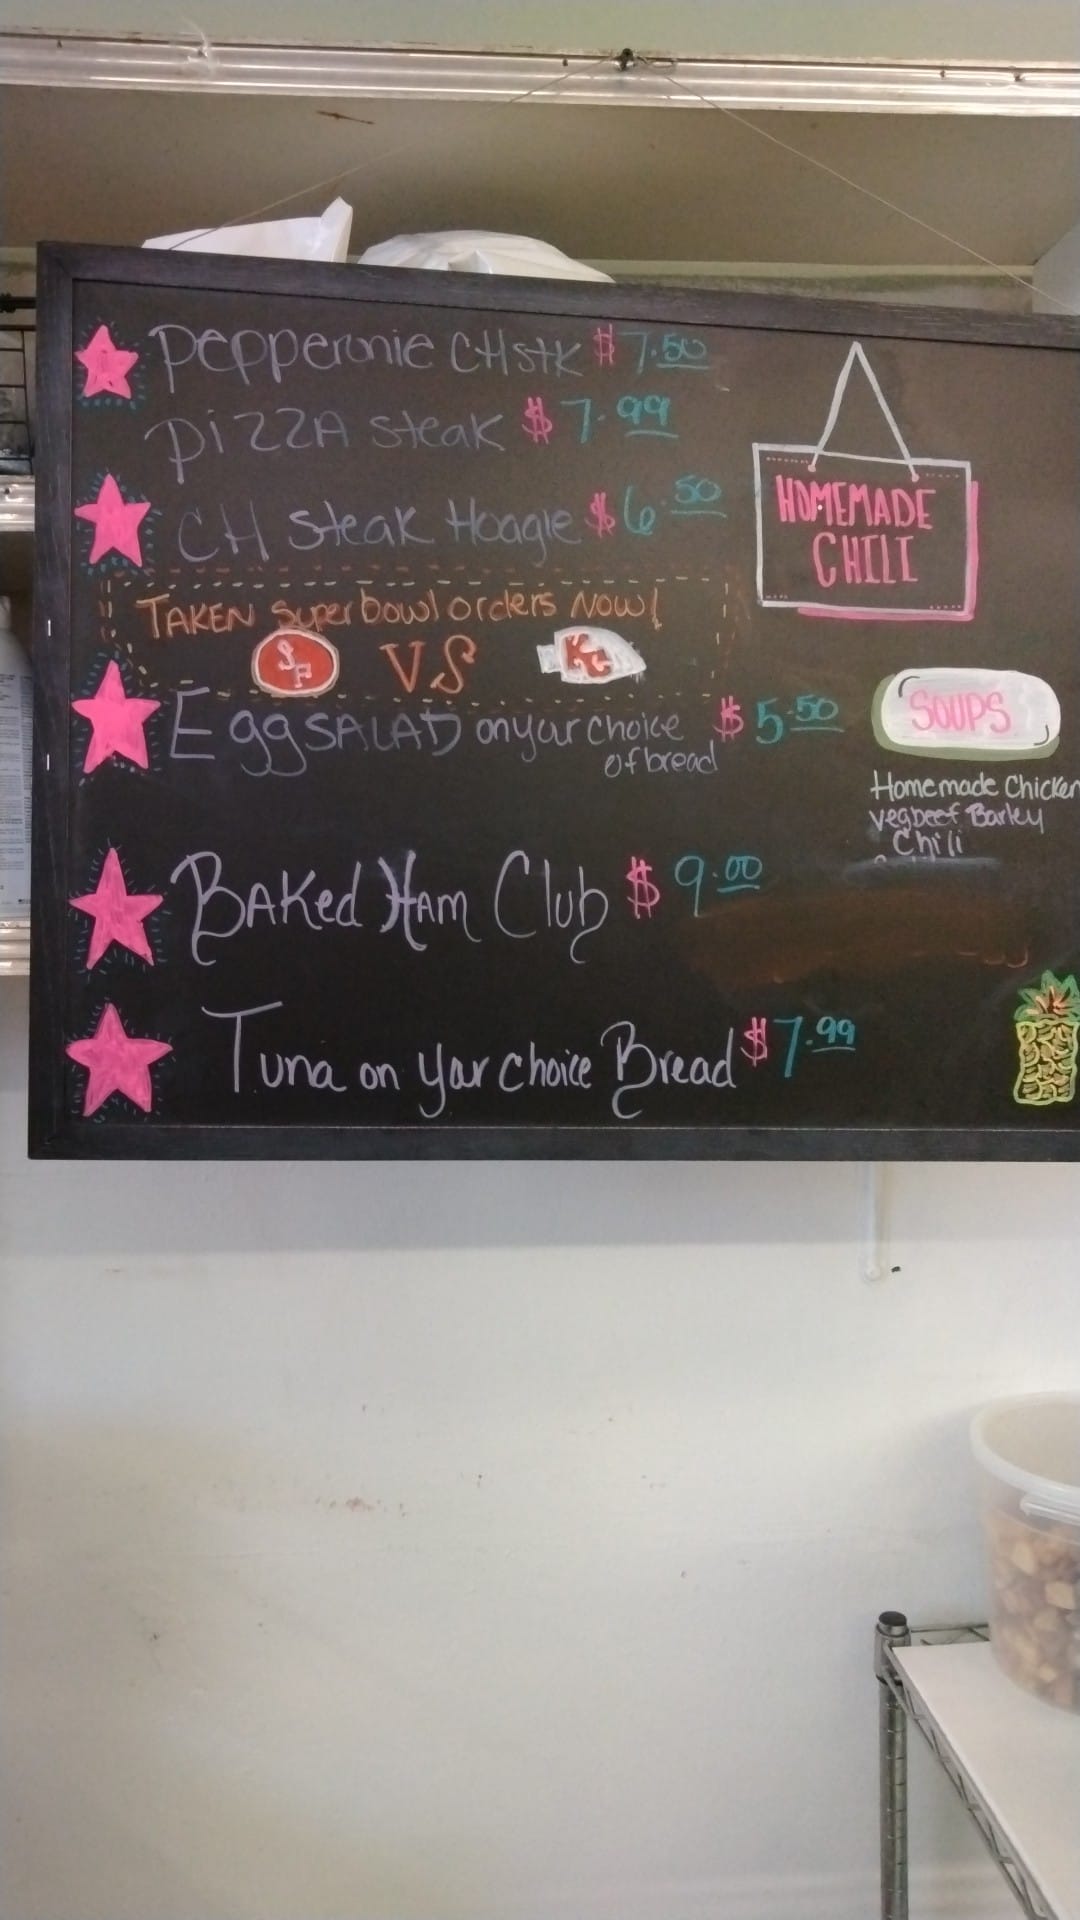 Pepperonie CHstk $7.50
Pizza Steak $7.99
CH Steak Hoagie $6.50
TAKEN Superbowl orders NOW!
SF VS KC
Egg SALAD on your choice $5.50
of bread
BAKed HAM Club $9.00
Tuna on your choice Bread $7.99
HOMEMADE
CHILI
SOUPS
Homemade Chicken
vegbeef Barley
Chili